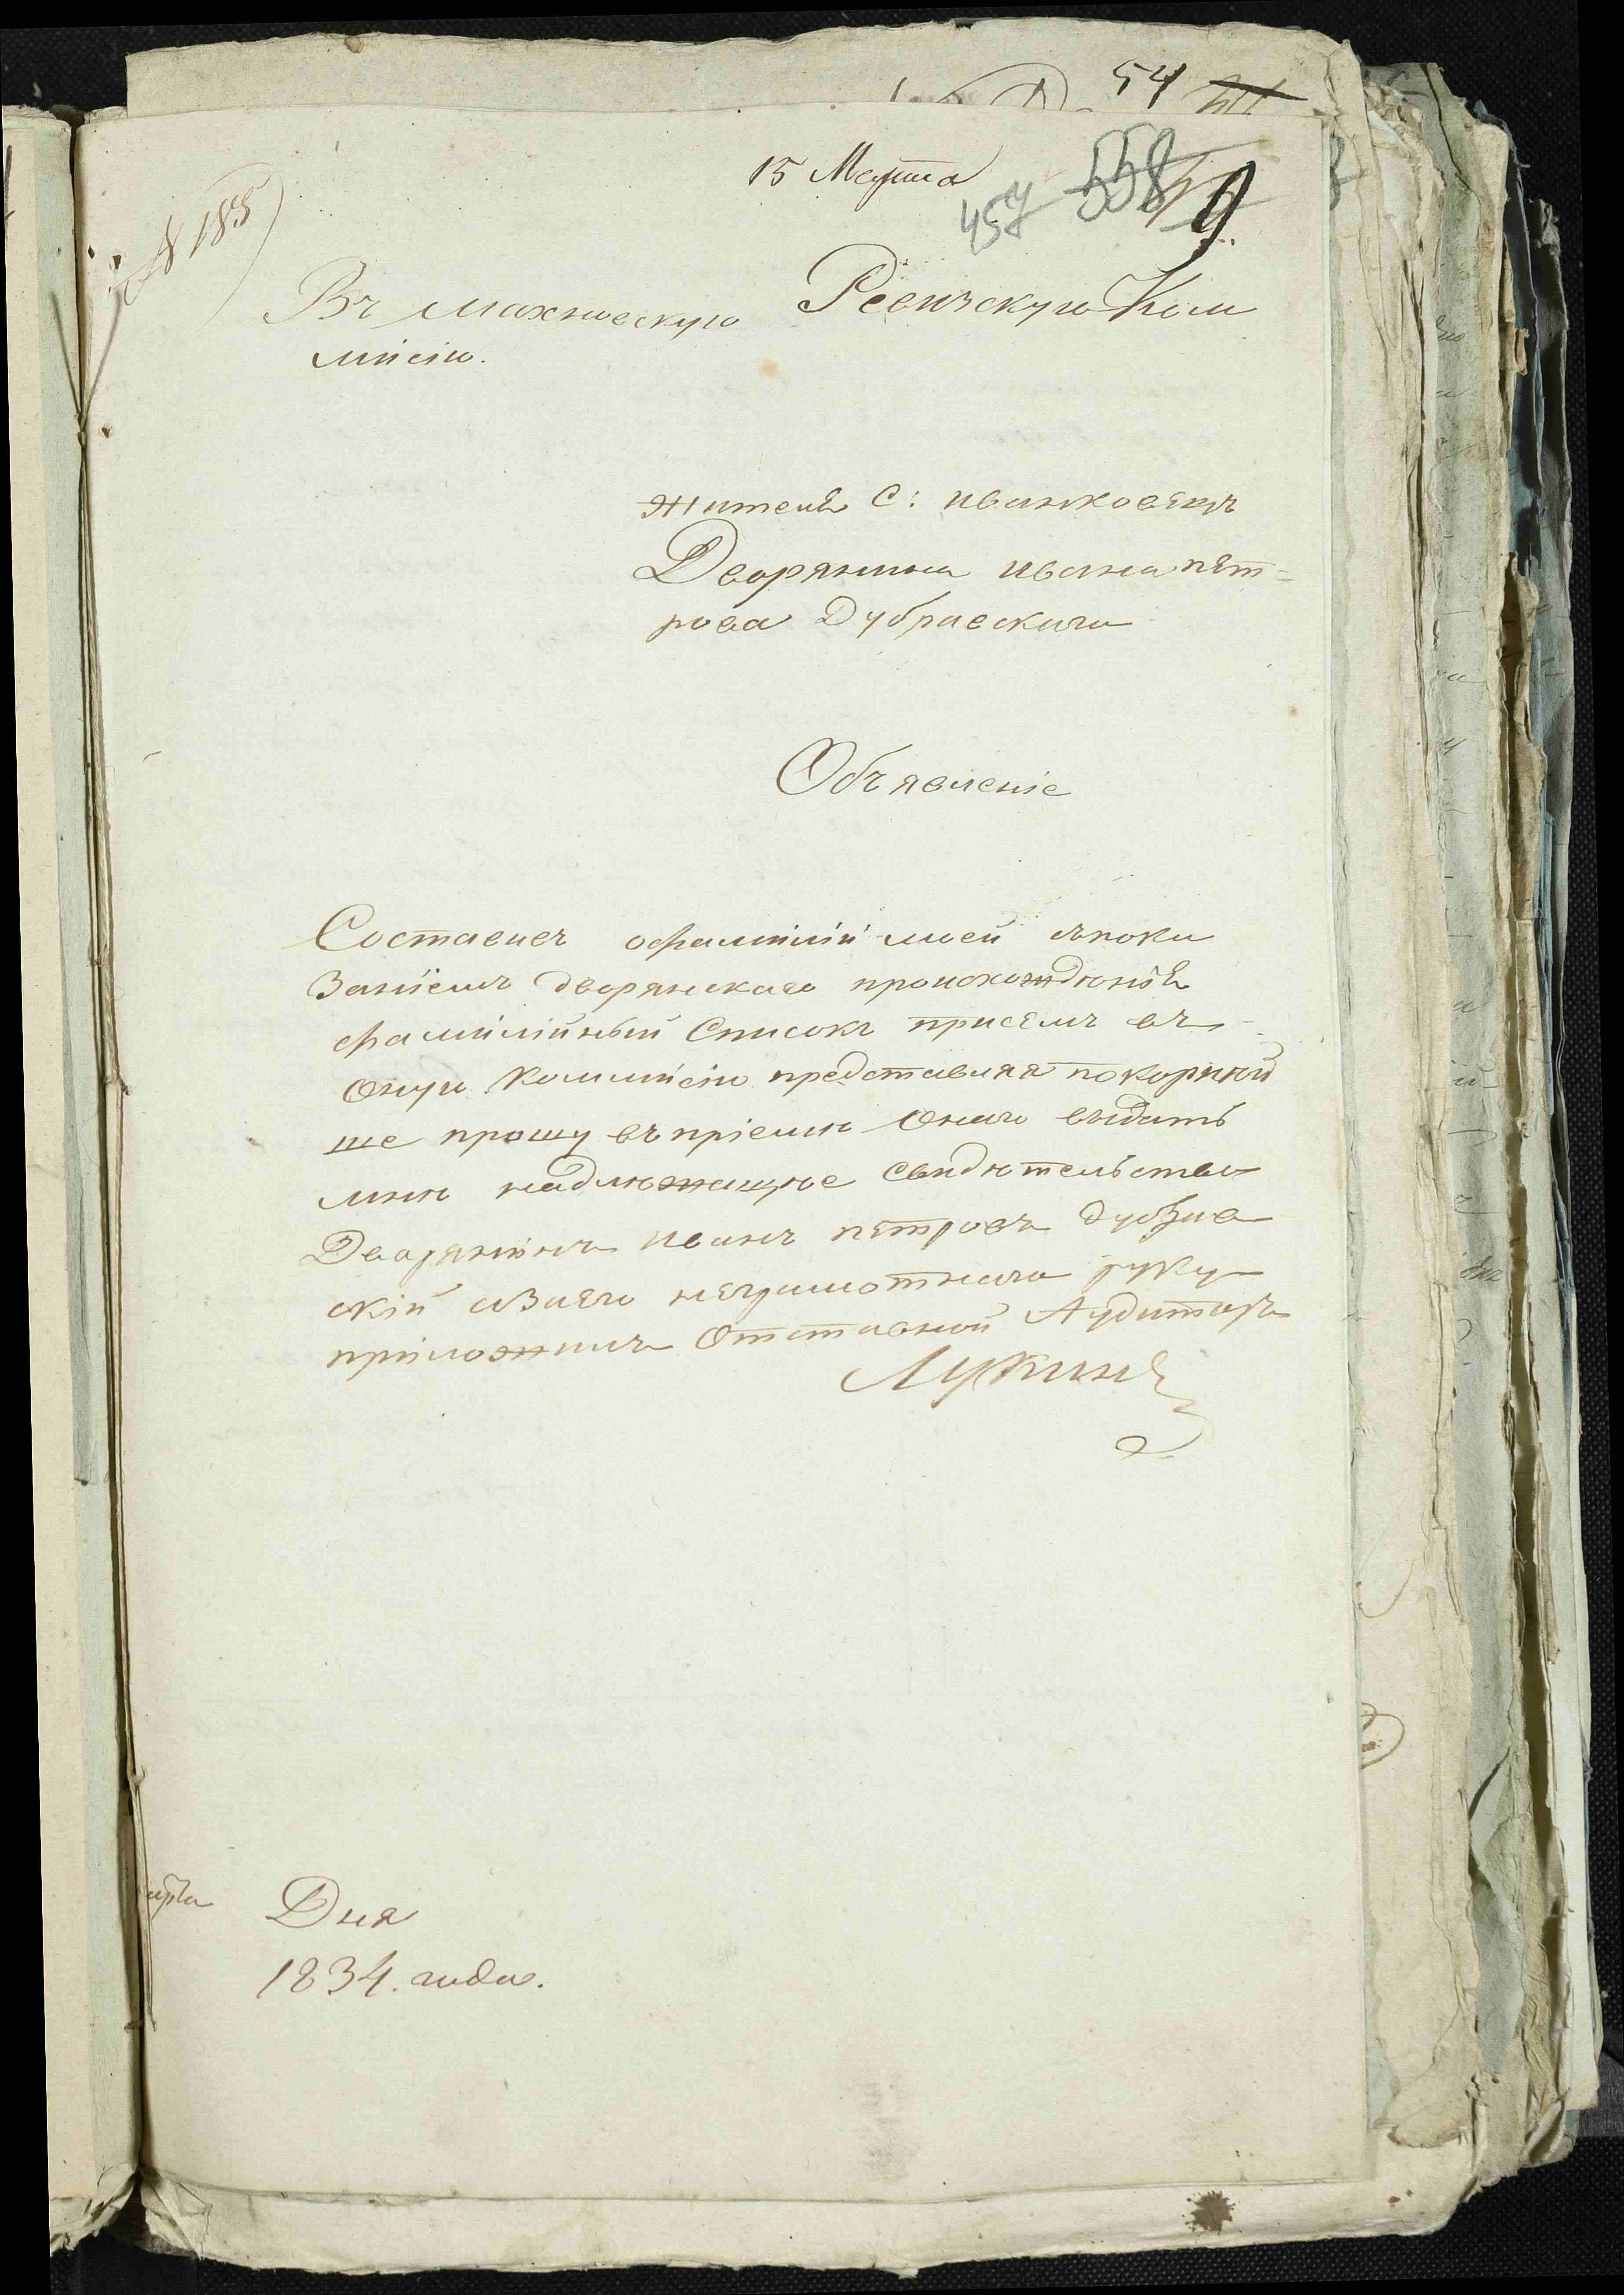 54
15 Марта
457 558 9
№ 185
Въ махновскую Ревизскую Ком
мисію.
жителя С: иванковецъ
Дворянина ивана пѣт-
рова Дубравскаго
Объявленіе
Составивъ офамиліи моей
Заніемъ дворянскаго происхождѣнія
фамилійный Списокъ присемъ въ
Оную коммисію представляя покорнѣй
ше прошу въ пріемѣ Онаго выдать
мнѣ надлѣжащѣе Свидѣтельство
Дворянинъ иванъ пѣтровъ дубрав
скій азаѣго нѣграмотнаго руку
приложилъ Отставной Аудиторъ
Лукинъ
Дня
1834. года.